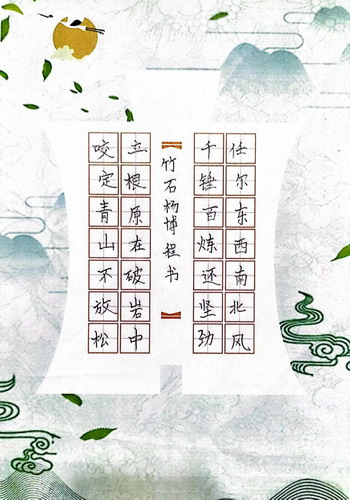 咬定青山不放松
立根原在破岩中
竹石杨博程书
千锤百炼还坚劲
任尔东西南北风